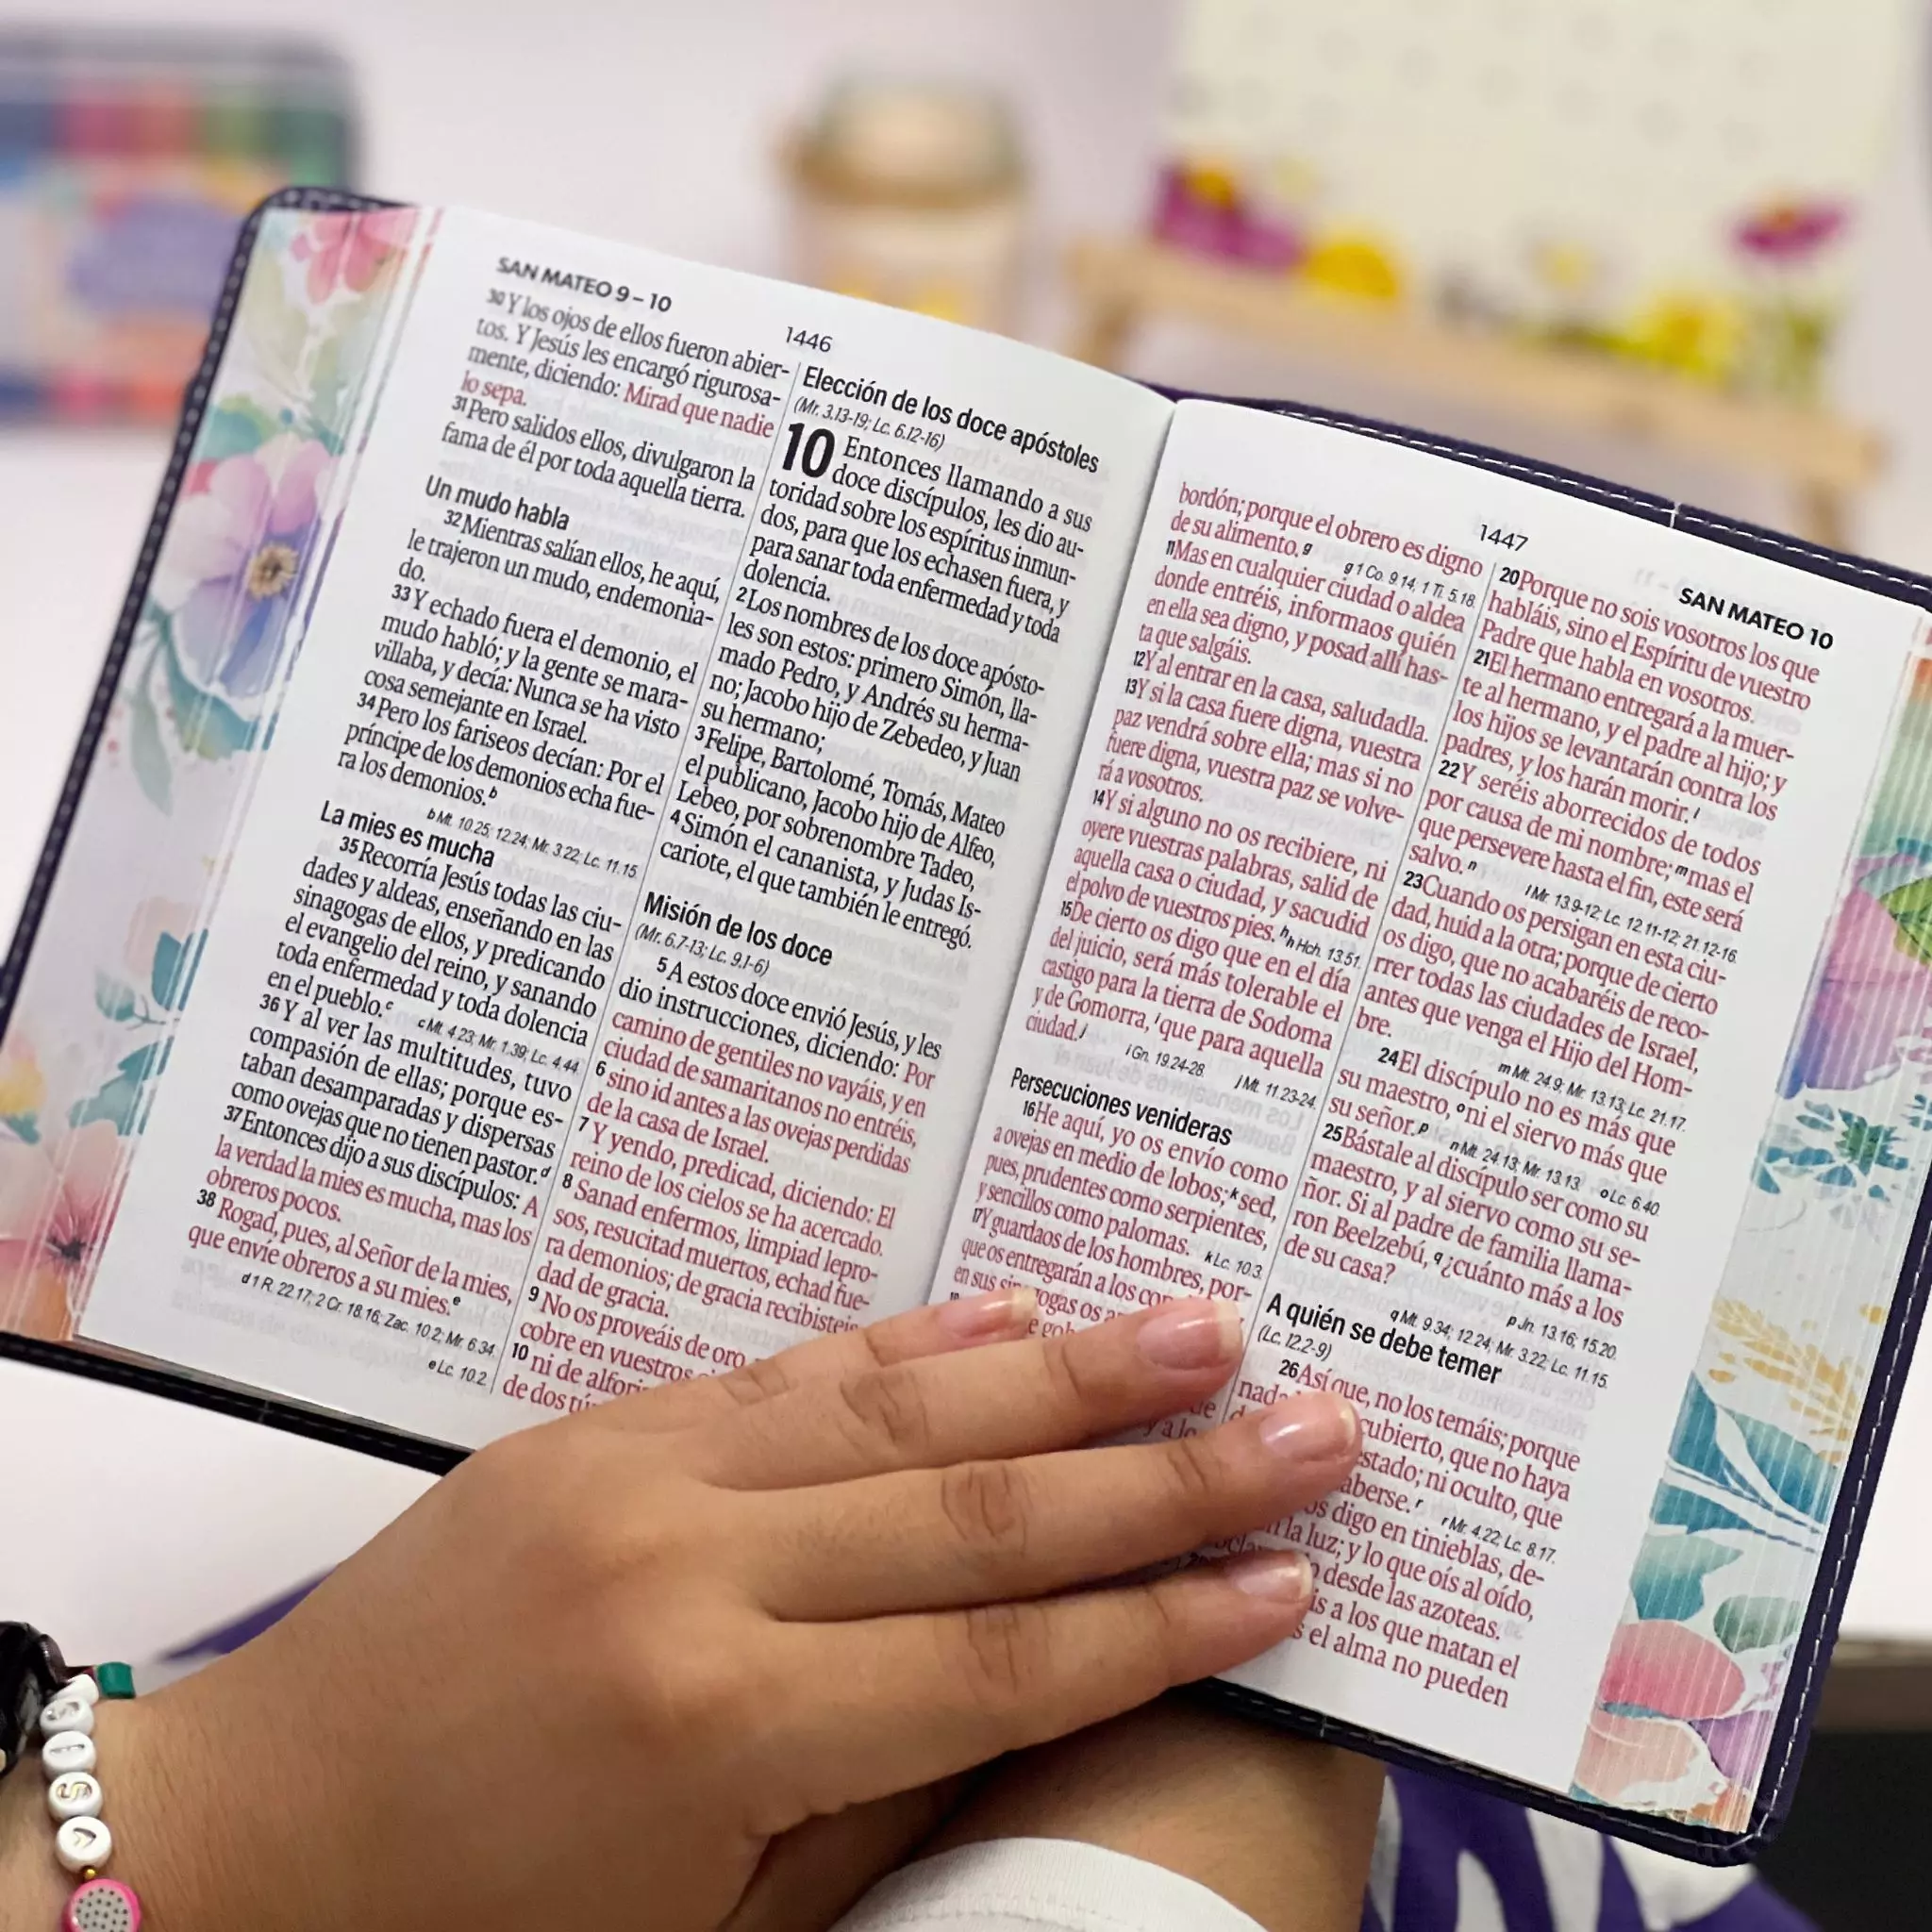 SAN MATEO 9 – 10
1446
30 Y los ojos de ellos fueron abier-
tos. Y Jesús les encargó rigurosa-
mente, diciendo: Mirad que nadie
lo sepa.
31 Pero salidos ellos, divulgaron la
fama de él por toda aquella tierra.
Un mudo habla
32 Mientras salían ellos, he aquí,
le trajeron un mudo, endemonia-
do.
33 Y echado fuera el demonio, el
mudo habló; y la gente se mara-
villaba, y decía: Nunca se ha visto
cosa semejante en Israel.
34 Pero los fariseos decían: Por el
príncipe de los demonios echa fue-
ra los demonios.b
b Mt. 10.25; 12.24; Mr. 3.22; Lc. 11.15.
La mies es mucha
35 Recorría Jesús todas las ciu-
dades y aldeas, enseñando en las
sinagogas de ellos, y predicando
el evangelio del reino, y sanando
toda enfermedad y toda dolencia
en el pueblo.c
c Mt. 4.23; Mr. 1.39; Lc. 4.44.
36 Y al ver las multitudes, tuvo
compasión de ellas; porque es-
taban desamparadas y dispersas
como ovejas que no tienen pastor.d
37 Entonces dijo a sus discípulos: A
la verdad la mies es mucha, mas los
obreros pocos.
38 Rogad, pues, al Señor de la mies,
que envíe obreros a su mies.e
d 1 R. 22.17; 2 Cr. 18.16; Zac. 10.2; Mr. 6.34.
e Lc. 10.2.
Elección de los doce apóstoles
(Mr. 3.13-19; Lc. 6.12-16)
10 Entonces llamando a sus
doce discípulos, les dio au-
toridad sobre los espíritus inmun-
dos, para que los echasen fuera, y
para sanar toda enfermedad y toda
dolencia.
2 Los nombres de los doce apósto-
les son estos: primero Simón, lla-
mado Pedro, y Andrés su herma-
no; Jacobo hijo de Zebedeo, y Juan
su hermano;
3 Felipe, Bartolomé, Tomás, Mateo
el publicano, Jacobo hijo de Alfeo,
Lebeo, por sobrenombre Tadeo,
4 Simón el cananista, y Judas Is-
cariote, el que también le entregó.
Misión de los doce
(Mr. 6.7-13; Lc. 9.1-6)
5 A estos doce envió Jesús, y les
dio instrucciones, diciendo: Por
camino de gentiles no vayáis, y en
ciudad de samaritanos no entréis,
6 sino id antes a las ovejas perdidas
de la casa de Israel.
7 Y yendo, predicad, diciendo: El
reino de los cielos se ha acercado.
8 Sanad enfermos, limpiad lepro-
sos, resucitad muertos, echad fue-
ra demonios; de gracia recibisteis
dad de gracia.
9 No os proveáis de oro
cobre en vuestros
10 ni de alfor
de dos tú
1447
SAN MATEO 10
bordón; porque el obrero es digno
de su alimento.g
g 1 Co. 9.14; 1 Ti. 5.18.
11 Mas en cualquier ciudad o aldea
donde entréis, informaos quién
en ella sea digno, y posad allí has-
ta que salgáis.
12 Y al entrar en la casa, saludadla.
13 Y si la casa fuere digna, vuestra
paz vendrá sobre ella; mas si no
fuere digna, vuestra paz se volve-
rá a vosotros.
14 Y si alguno no os recibiere, ni
oyere vuestras palabras, salid de
aquella casa o ciudad, y sacudid
el polvo de vuestros pies.h h Hch. 13.51.
15 De cierto os digo que en el día
del juicio, será más tolerable el
castigo para la tierra de Sodoma
y de Gomorra,i que para aquella
ciudad.j
i Gn. 19.24-28. j Mt. 11.23-24.
Persecuciones venideras
16 He aquí, yo os envío como
a ovejas en medio de lobos;k sed,
pues, prudentes como serpientes,
y sencillos como palomas. k Lc. 10.3.
17 Y guardaos de los hombres, por-
que os entregarán a los con
en sus sin ogas os a
e gob
y a lo
20 Porque no sois vosotros los que
habláis, sino el Espíritu de vuestro
Padre que habla en vosotros.
21 El hermano entregará a la muer-
te al hermano, y el padre al hijo; y
los hijos se levantarán contra los
padres, y los harán morir.l
22 Y seréis aborrecidos de todos
por causa de mi nombre;m mas el
que persevere hasta el fin, este será
salvo.n
l Mr. 13.9-12; Lc. 12.11-12; 21.12-16.
23 Cuando os persigan en esta ciu-
dad, huid a la otra; porque de cierto
os digo, que no acabaréis de reco-
rrer todas las ciudades de Israel,
antes que venga el Hijo del Hom-
bre.
m Mt. 24.9; Mr. 13.13; Lc. 21.17.
24 El discípulo no es más que
su maestro,o ni el siervo más que
su señor.p
n Mt. 24.13; Mr. 13.13. o Lc. 6.40.
25 Bástale al discípulo ser como su
maestro, y al siervo como su se-
ñor. Si al padre de familia llama-
ron Beelzebú,q ¿cuánto más a los
de su casa?
p Jn. 13.16; 15.20.
q Mt. 9.34; 12.24; Mr. 3.22; Lc. 11.15.
A quién se debe temer
(Lc. 12.2-9)
26 Así que, no los temáis; porque
nada cubierto, que no haya
estado; ni oculto, que
aberse.r
r Mr. 4.22; Lc. 8.17.
os digo en tinieblas, de-
n la luz; y lo que oís al oído,
desde las azoteas.
is a los que matan el
s el alma no pueden